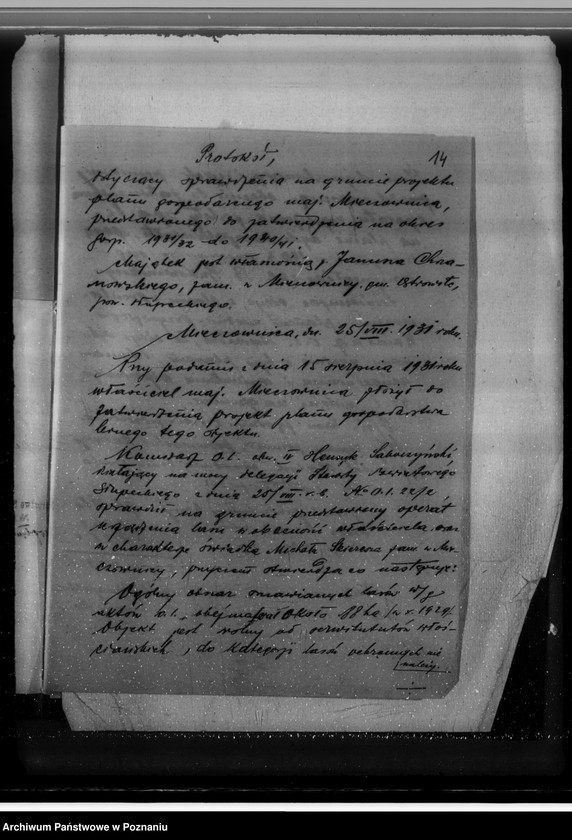 Protokół,
14
dotyczący sprawdzenia na gruncie projektu
planu gospodarczego maj. Mieczownica,
przedstawionego do zatwierdzenia na okres
gosp. 1931/32 do 1940/41.
Majątek jest własnością p. Janusza Chrza-
nowskiego, zam. w Mieczownicy, gm. Ostrowite,
pow. słupeckiego.
Mieczownica, dn. 25/VIII 1931 roku.
Przy podaniu z dnia 15 sierpnia 1931 roku
właściciel maj. Mieczownica złożył do
zatwierdzenia projekt planu gospodarstwa
leśnego tego objektu.
Komisarz O.L. okr. IV Henryk
działający na mocy delegacji Starosty Powiatowego
Słupeckiego z dnia 25/VIII r.b. No O.L. 22/2,
sprawdził na gruncie przedstawiony operat
urządzenia lasu w obecności właściciela oraz
w charakterze świadka Michała zam. w Mie-
czownicy, przyczem stwierdza co następuje:
Ogólny obszar omawianych lasów w/g
aktów o.l., obejmował około 88 ha /w r. 1929/.
Objekt jest wolny od serwitutów włoś-
ciańskich, do kategorji lasów ochronnych nie
należy.
Archiwum Państwowe w Poznaniu